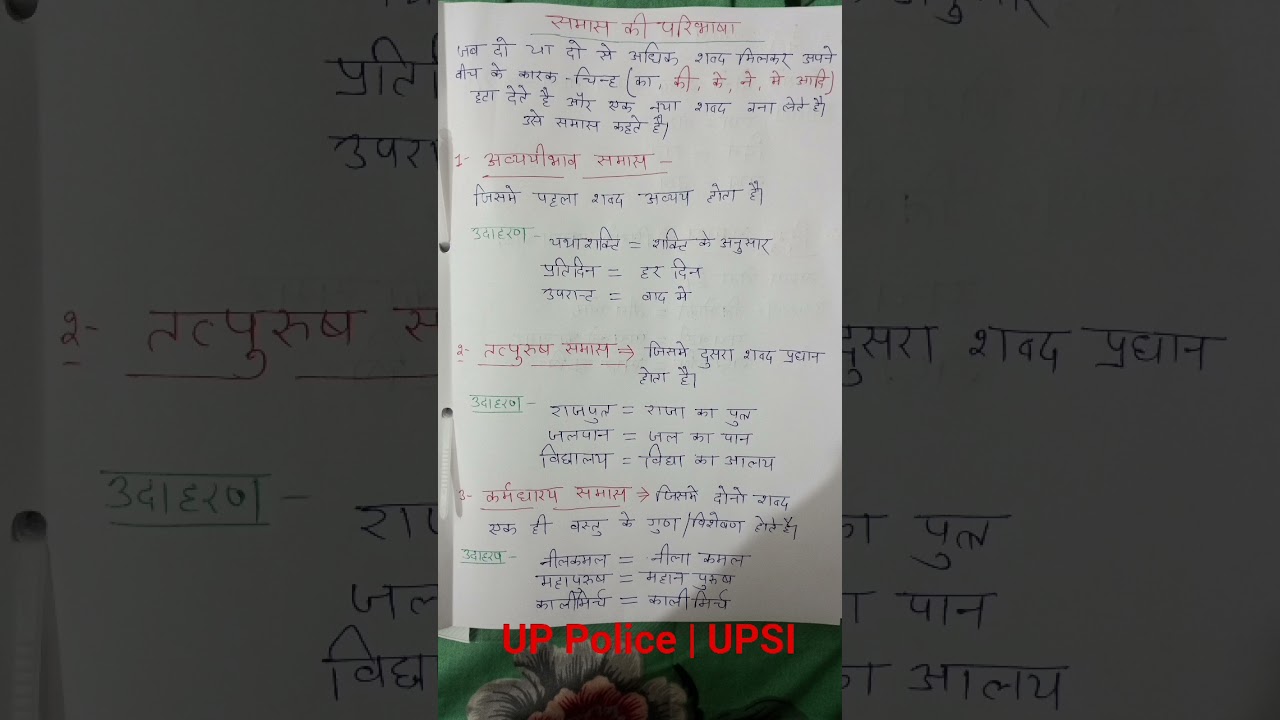 समास की परिभाषा
जब दो या दो से अधिक शब्द मिलकर अपने
बीच के कारक-चिन्ह (का, की, के, ने, मे आदि)
हटा देते है और एक नया शब्द बना लेते है।
उसे समास कहते है।
1- अव्ययीभाव समास -
जिसमे पहला शब्द अव्यय होता है।
उदाहरण - यथाशक्ति = शक्ति के अनुसार
प्रतिदिन = हर दिन
उपरान्ट = बाद मे
२- तत्पुरुष समास ⇒ जिसमे दुसरा शब्द प्रधान
होता है।
उदाहरण - राजपुत्र = राजा का पुत्र
जलपान = जल का पान
विद्यालय = विद्या का आलय
3- कर्मधारय समास ⇒ जिसमे दोनो शब्द
एक ही वस्तु के गुण/विशेषण होते है।
उदाहरण - नीलकमल = नीला कमल
महापुरुष = महान पुरुष
कालीमिर्च = काली मिर्च
UP Police | UPSI